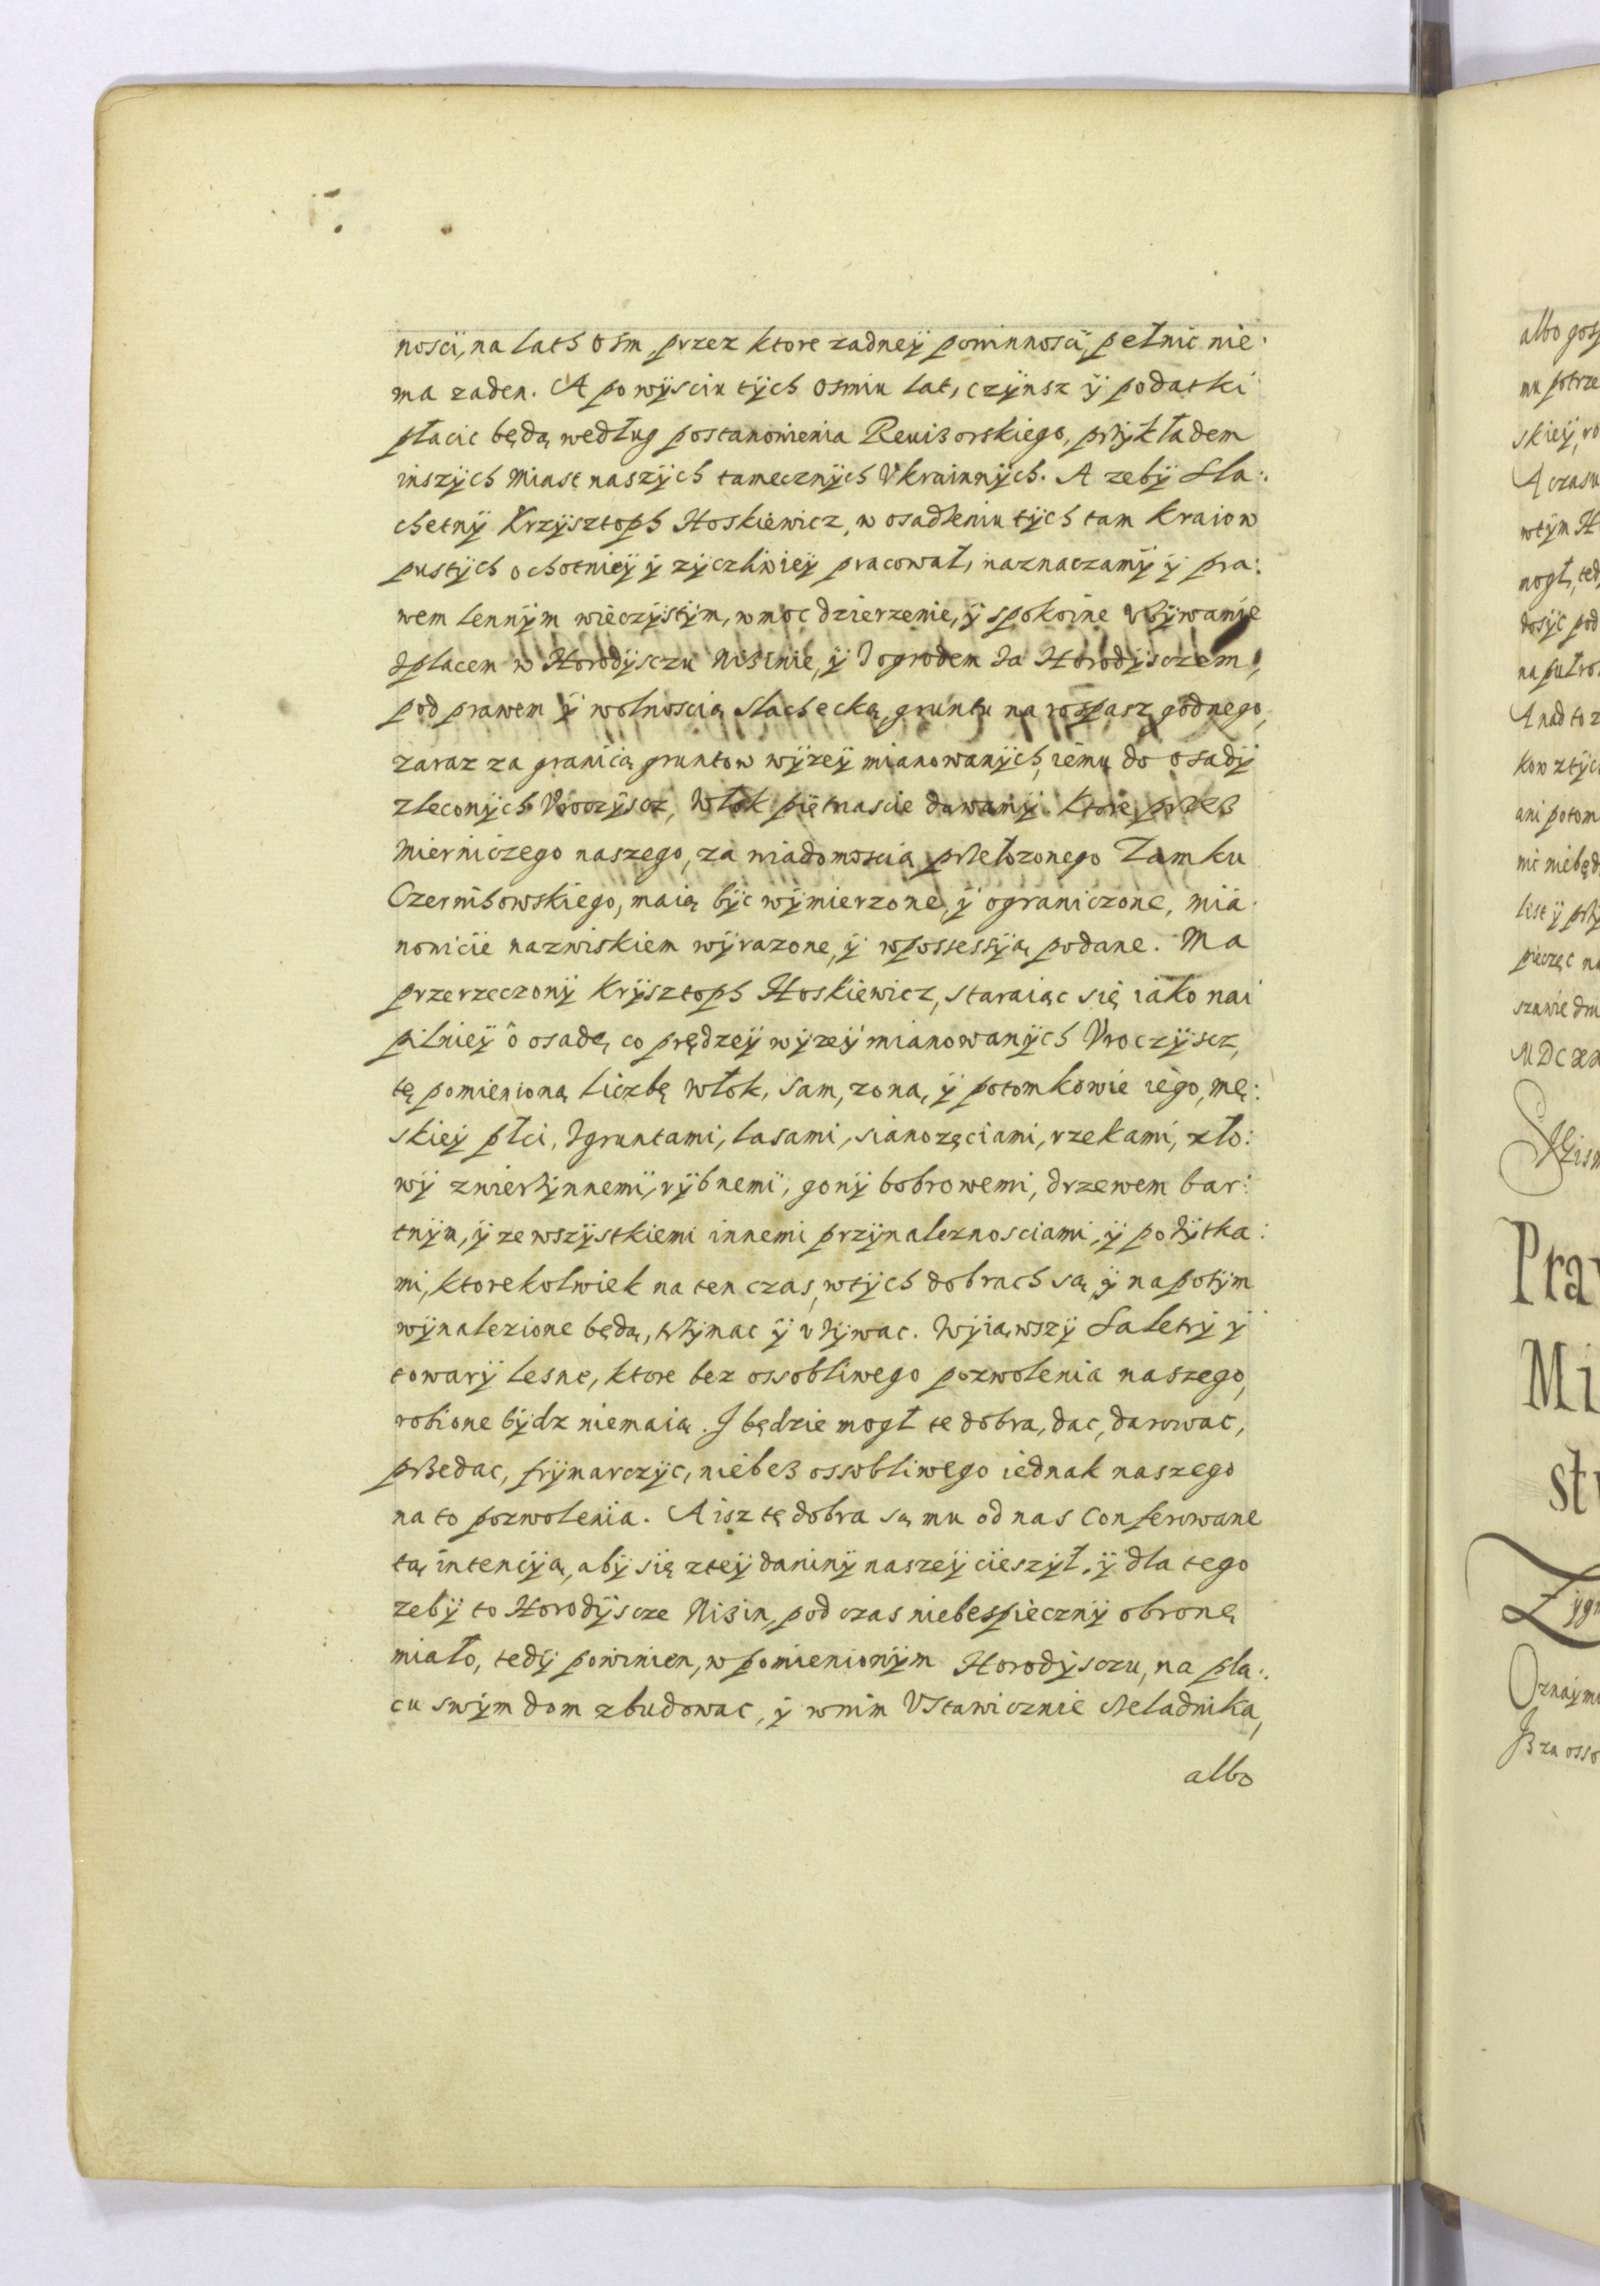 nosci, na lath osm, przez ktore zadneÿ powinnosci, pełnic nie
ma zaden. A po wÿsciu tÿch osmiu lat, czÿnsz ÿ podatki
płacic będą według postanowienia Reuisorskiego, przÿkładem
inszÿch Miast naszÿch tamecznÿch Vkrainnÿch. A zebÿ Sla:
chetnÿ Krzÿsztoph Hoskiewicz, w osadzeniu tÿch tam kraiow
pustÿch ochotnieÿ ÿ zÿczliwieÿ pracował, naznaczamÿ ÿ pra:
wem lennÿm wieczÿstÿm, w moc dzierzenie, ÿ spokoine vzÿwanie
z placem w Horodÿsczu Nizinie, ÿ z ogrodem za Horodÿsczem,
pod prawem ÿ wolnoscią slachecką, gruntu na rospasz godnego,
zaraz za granicą gruntow wÿzeÿ mianowanÿch, iemu do osadÿ
zleconÿch Vroczÿscz, Włok piętnascie dawamÿ. Ktore przez
Mierniczego naszego, za wiadomoscią przełozonego Zamku
Czernihowskiego, maią bÿc wÿmierzone, ÿ ograniczone, mia
nowicie nazwiskiem wÿrazone, ÿ w possessÿą podane. Ma
przerzeczonÿ Krÿsztoph Hoskiewicz, staraiąc się iako nai
pilnieÿ ô osadę, co prędzeÿ wÿzeÿ mianowanÿch Vroczÿscz,
tę pomienioną liczbę włok, sam, zona, ÿ potomkowie iego, mę:
skieÿ płci, z gruntami, lasami, sianozęciami, rzekami, z ło:
wÿ zwierzÿnnemi, rÿbnemi, gonÿ bobrowemi, drzewem bar:
tnÿm, ÿ ze wszÿstkiemi innemi przÿnaleznosciami, ÿ pozÿtka:
mi, ktorekolwiek na ten czas, w tÿch dobrach są, ÿ napotÿm
wÿnalezione będą, trzÿmac ÿ vzÿwac. Wÿiąwszÿ Saletrÿ ÿ
towarÿ lesne, ktore bez ossobliwego pozwolenia naszego,
robione bÿdz niemaią. I będzie mogł te dobra, dac, darowac,
przedac, frÿmarczÿc, niebez ossobliwego iednak naszego
na to pozwolenia. A isz tę dobra są mu od nas conferowane
tą intencÿą, abÿ się z teÿ daninÿ naszeÿ cieszÿł, ÿ dla tego
zebÿ to Horodÿscze Nizin, pod czas niebespiecznÿ obronę
miało, tedÿ powinien, w pomienionÿm Horodÿsczu, na pla:
cu swÿm dom zbudowac, ÿ w nim Vstawicznie czeladnika,
albo
albo gos
mu potrze
skieÿ, ro
A czasu
w tÿm H
mogł, ted
dosÿc pod
na putro
A nad to z
kow z tÿc
ani potom
mi niebęd
list ÿ prz
pieczęc na
szawie dni
MDCXX
Prav
Mi
st
Zÿg
Oznaÿmu
Iz za osso